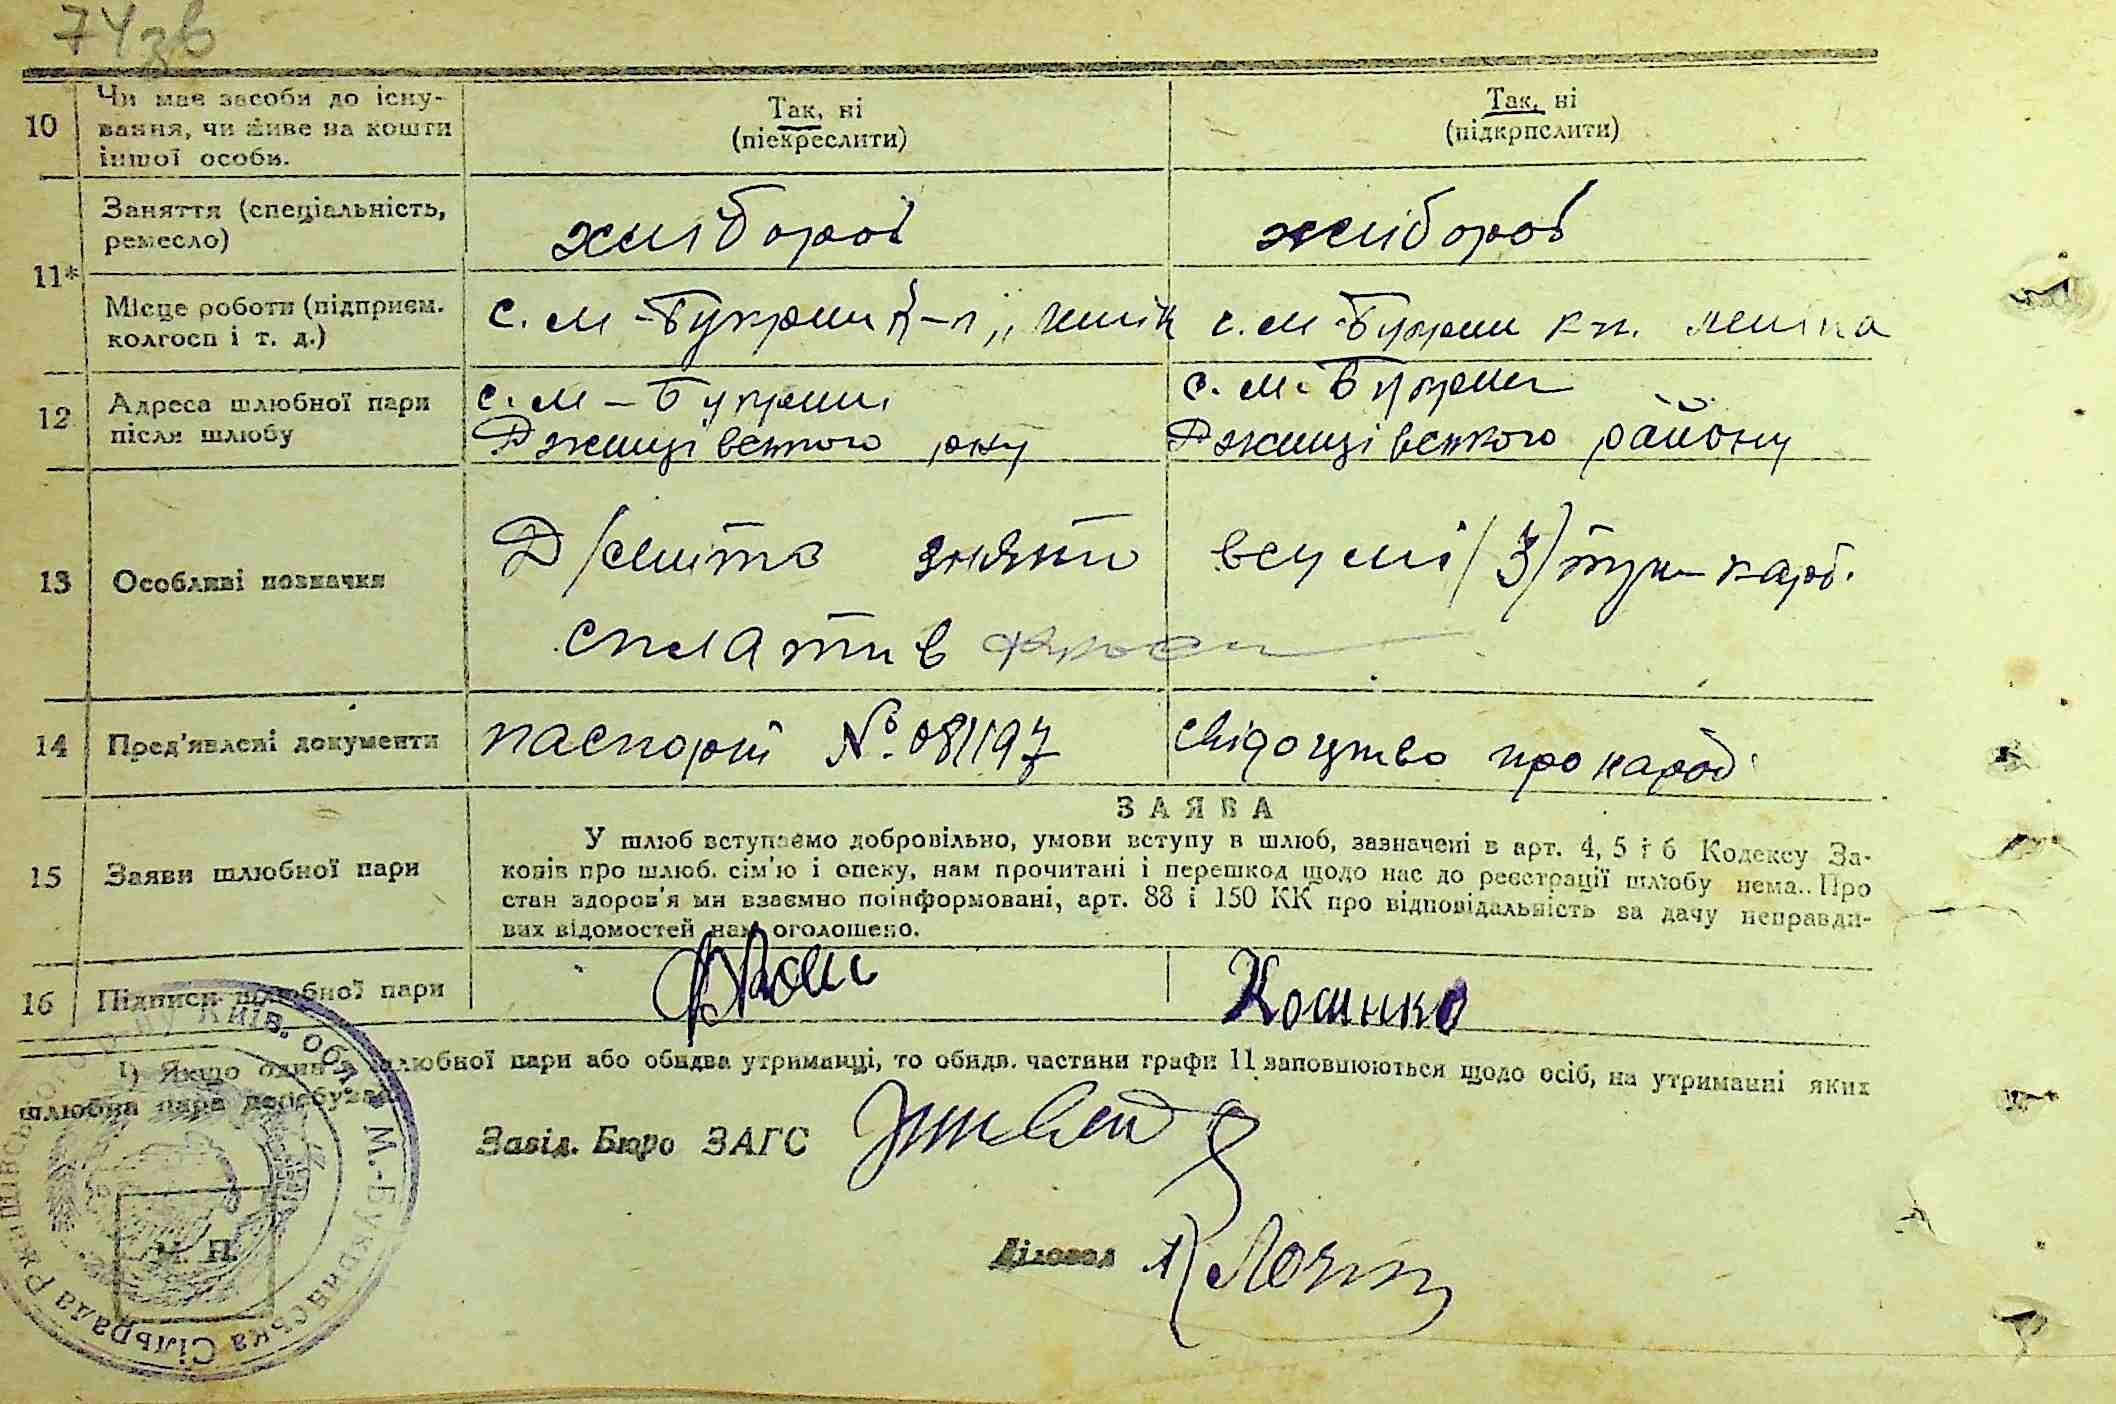 74зв
10 Чи має засоби до існу-
вання, чи живе на кошти
іншої особи.
Так, ні
(піекреслити)
Так, ні
(підкрпслити)
11*
Заняття (спеціальність,
ремесло)
хлібороб
хлібороб
Місце роботи (підприєм.
колгосп і т. д.)
с. М-Букрин
с. М-Букрин кп. Леніна
12 Адреса шлюбної пари
після шлюбу
с. М-Букрин
Ржищівського рну
с. М-Букрин
Ржищівського району
13 Особливі позначки
зняти
карб.
сплатив
14 Пред'явлені документи
паспорт № 081197
свідоцтво про народ
15 Заяви шлюбної пари
ЗАЯВА
У шлюб вступаємо добровільно, умови вступу в шлюб, зазначені в арт. 4, 5 і 6 Кодексу За-
конів про шлюб. сім'ю і опеку, нам прочитані і перешкод щодо нас до реєстрації шлюбу нема.. Про
стан здоров'я ми взаємно поінформовані, арт. 88 і 150 КК про відповідальність за дачу неправди-
вих відомостей нам оголошено.
16 Підписи шлюбної пари
1) Якщо один з шлюбної пари або обидва утриманці, то обидв. частини графи 11 заповнюються щодо осіб, на утриманні яких
шлюбна пара перебуває.
Завід. Бюро ЗАГС
Діловод
М. П.
М.-Букринська Сільрада Ржищівського р-ну Київ. обл.